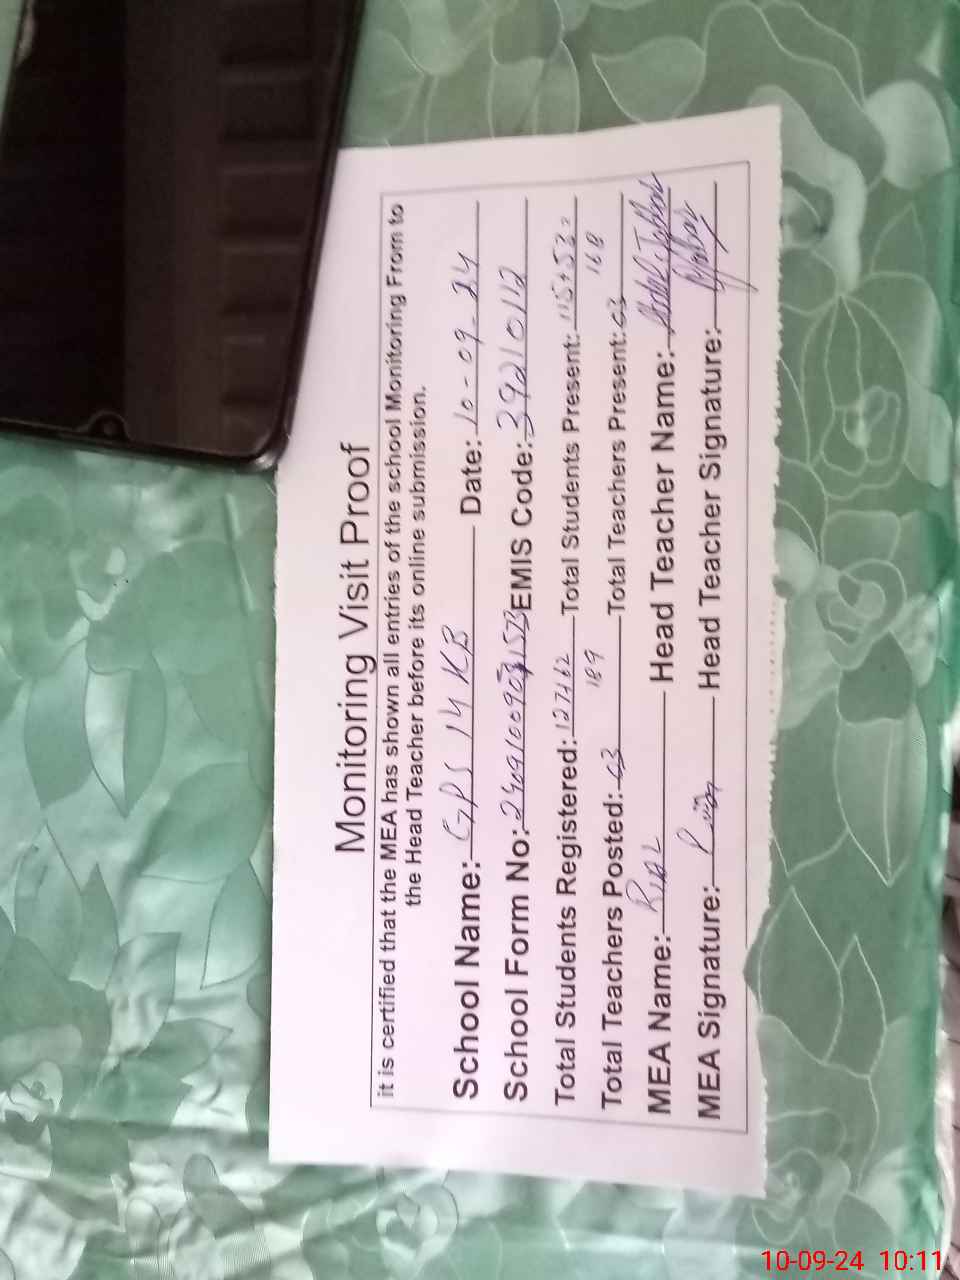 Monitoring Visit Proof
it is certified that the MEA has shown all entries of the school Monitoring From to
the Head Teacher before its online submission.
School Name: GPS 14 KB Date: 10-09-24
School Form No: EMIS Code: 39210112
Total Students Registered: 127+62 Total Students Present: 115+53=
189 168
Total Teachers Posted: 03 Total Teachers Present: 03
MEA Name: Head Teacher Name:
MEA Signature: Head Teacher Signature:
10-09-24 10:11